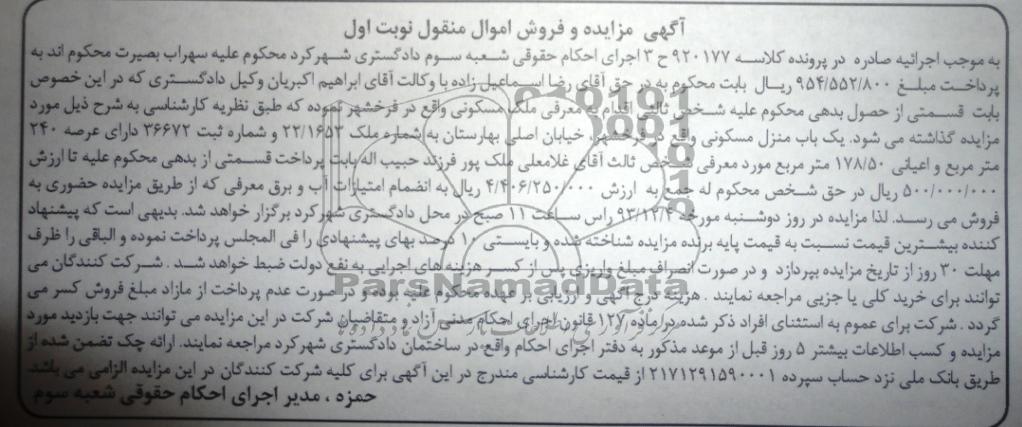 آگهی مزایده و فروش اموال منقول نوبت اول
به موجب اجرائیه صادره در پرونده کلاسه ۹۲۰۱۷۷ ح ۳ اجرای احکام حقوقی شعبه سوم دادگستری شهرکرد محکوم علیه سهراب بصیرت محکوم اند به
پرداخت مبلغ ۹۵۴/۵۵۲/۸۰۰ ریال بابت محکوم به در حق آقای رضا اسماعیل زاده با وکالت آقای ابراهیم اکبریان وکیل دادگستری که در این خصوص
بابت قسمتی از حصول بدهی محکوم علیه شخص ثالثی اقدام به معرفی ملک مسکونی واقع در فرخشهر نموده که طبق نظریه کارشناسی به شرح ذیل مورد
مزایده گذاشته می شود. یک باب منزل مسکونی واقع در فرخشهر، خیابان اصلی بهارستان به شماره ملک ۲۲/۱۶۵۳ و شماره ثبت ۳۶۶۷۲ دارای عرصه ۲۴۰
متر مربع و اعیانی ۱۷۸/۵۰ متر مربع مورد معرفی شخص ثالث آقای غلامعلی ملک پور فرزند حبیب اله بابت پرداخت قسمتی از بدهی محکوم علیه تا ارزش
۵۰۰/۰۰۰/۰۰۰ ریال در حق شخص محکوم له جمع به ارزش ۴/۴۰۶/۲۵۰/۰۰۰ ریال به انضمام امتیازات آب و برق معرفی که از طریق مزایده حضوری به
فروش می رسد. لذا مزایده در روز دوشنبه مورخه ۹۳/۱۲/۴ راس ساعت ۱۱ صبح در محل دادگستری شهرکرد برگزار خواهد شد. بدیهی است که پیشنهاد
کننده بیشترین قیمت نسبت به قیمت پایه برنده مزایده شناخته شده و بایستی ۱۰ درصد بهای پیشنهادی را فی المجلس پرداخت نموده و الباقی را ظرف
مهلت ۳۰ روز از تاریخ مزایده بپردازد و در صورت انصراف مبلغ واریزی پس از کسر هزینه های اجرایی به نفع دولت ضبط خواهد شد. شرکت کنندگان می
توانند برای خرید کلی یا جزیی مراجعه نمایند. هزینه درج آگهی و ارزیابی بر عهده محکوم علیه بوده و در صورت عدم پرداخت از مازاد مبلغ فروش کسر می
گردد. شرکت برای عموم به استثنای افراد ذکر شده در ماده ۱۲۷ قانون اجرای احکام مدنی آزاد و متقاضیان شرکت در این مزایده می توانند جهت بازدید مورد
مزایده و کسب اطلاعات بیشتر ۵ روز قبل از موعد مذکور به دفتر اجرای احکام واقع در ساختمان دادگستری شهرکرد مراجعه نمایند. ارائه چک تضمن شده از
طریق بانک ملی نزد حساب سپرده ۲۱۷۱۲۹۱۵۹۰۰۰۱ از قیمت کارشناسی مندرج در این آگهی برای کلیه شرکت کنندگان در این مزایده الزامی می باشد.
حمزه، مدیر اجرای احکام حقوقی شعبه سوم
ParsNamadData